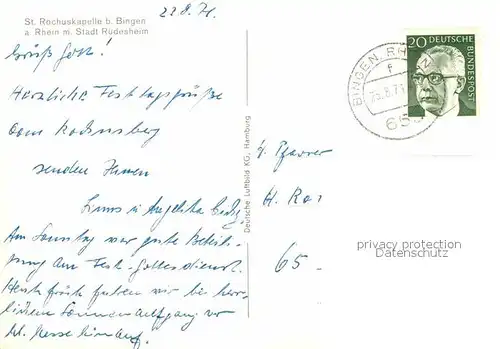 22.8.71.
St. Rochuskapelle b. Bingen
a. Rhein m. Stadt Rüdesheim
Grüß Gott!
Herzliche Festtagsgrüße
vom Rochusberg
senden Ihnen
Linus u. Angelika
Am Sonntag war gute Beteili-
gung am Fest-Gottesdienst.
Heute früh fuhren wir bei herr-
lichem Sonnenaufgang zur
hl. Messe hinauf.
Deutsche Luftbild KG, Hamburg
BINGEN, RHEIN
f
65
20 DEUTSCHE
BUNDESPOST
Pfarrer
H.
65
privacy protection
Datenschutz